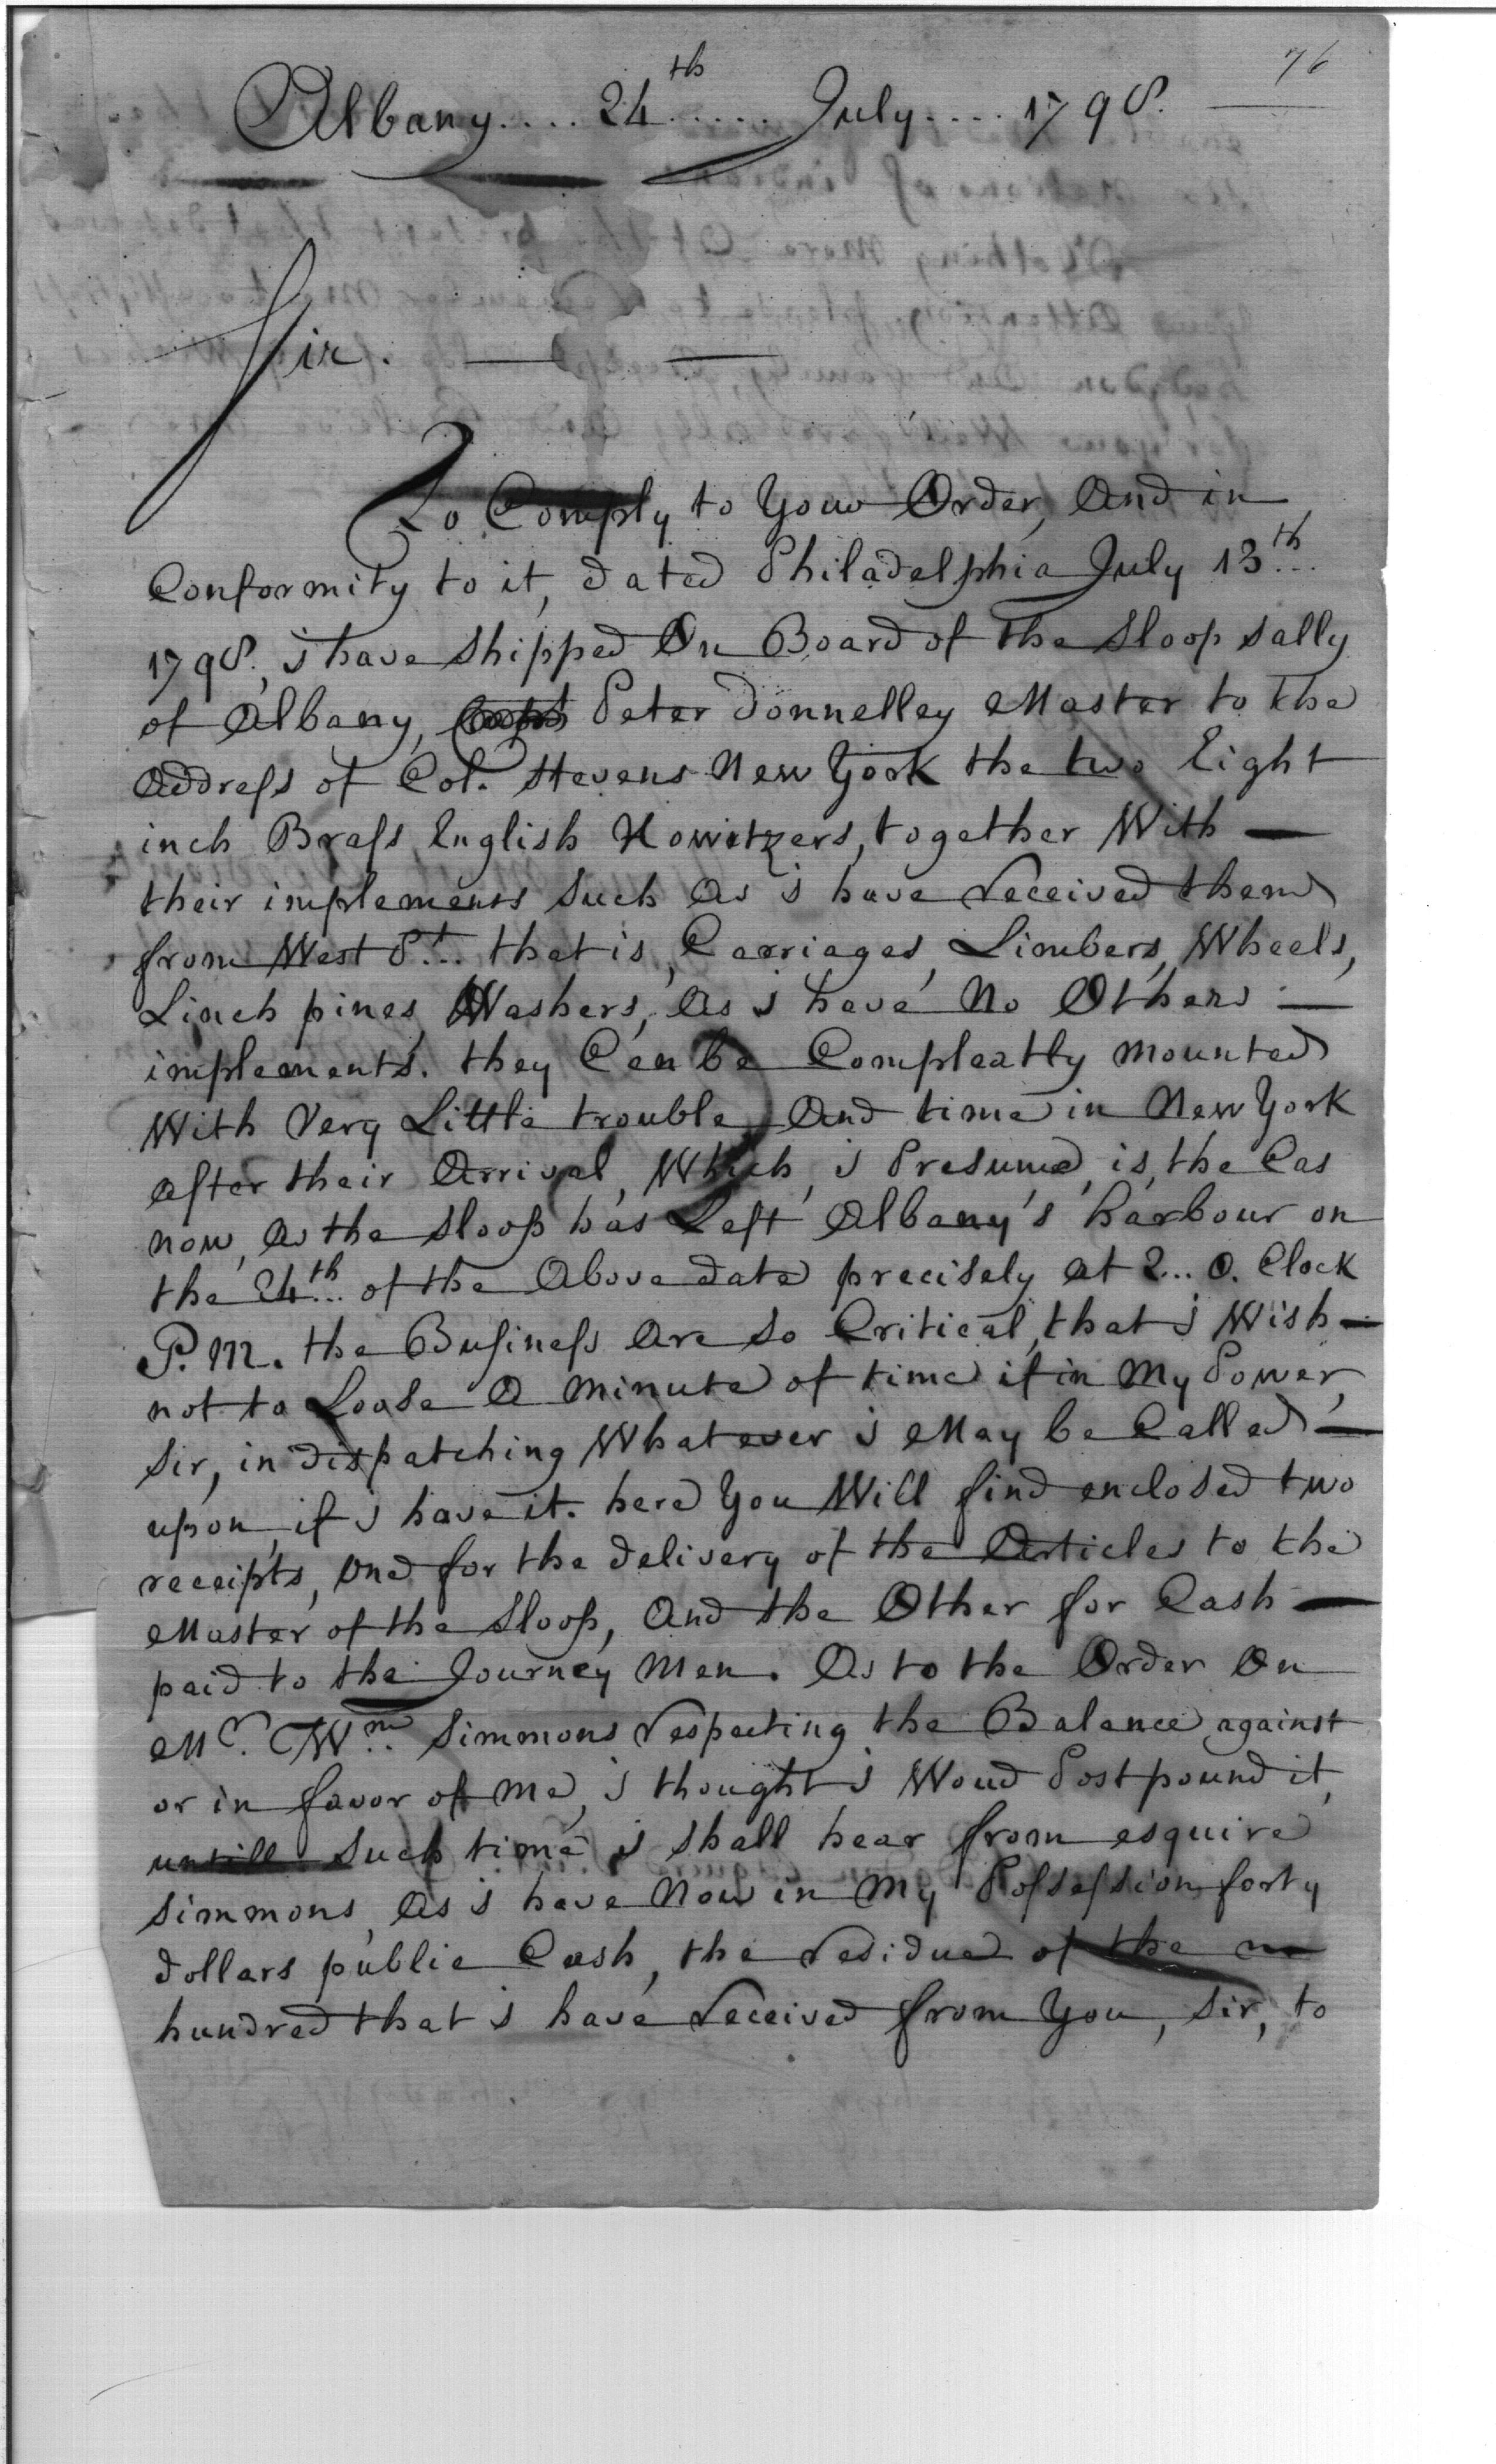 76
Albany.... 24th..... July.... 1798.
Sir.
To Comply to Your Order, And in
Conformity to it, dated Philadelphia July 13th...
1798., i have Shipped On Board of the Sloop Sally
of Albany, Capt. Peter Donnelley Master to the
Address of Col. Stevens New York the two Eight
inch Brass English Howitzers, together With —
their implements Such As i have received them
from West Pt... that is, Carriages, Limbers, Wheels,
Linch pines, Washers, As i have No Others —
implements. they Can be Compleatly mounted
With Very Little trouble, And time in New York
after their Arrival, Which, i Presume, is, the Cas
now, as the Sloop has Left Albany's harbour on
the 24th... of the Above date precisely at 2... O. Clock
P.M. the Business Are So Critical, that i Wish —
not to Loose A minute of time if in My Power,
Sir, in dispatching Whatever i May be Called —
upon, if i have it. here You Will find enclosed two
receipts, one for the delivery of the Articles to the
Master of the Sloop, And the Other for Cash —
paid to the Journey Men. As to the Order On
Mr. Wm.. Simmons respecting the Balance against
or in favor of me, i thought i Woud Postpound it,
untill Such time i shall hear from esquire
Simmons, As i have Now in My Possession forty
dollars public Cash, the residue of the
hundred that i have received from You, Sir, to